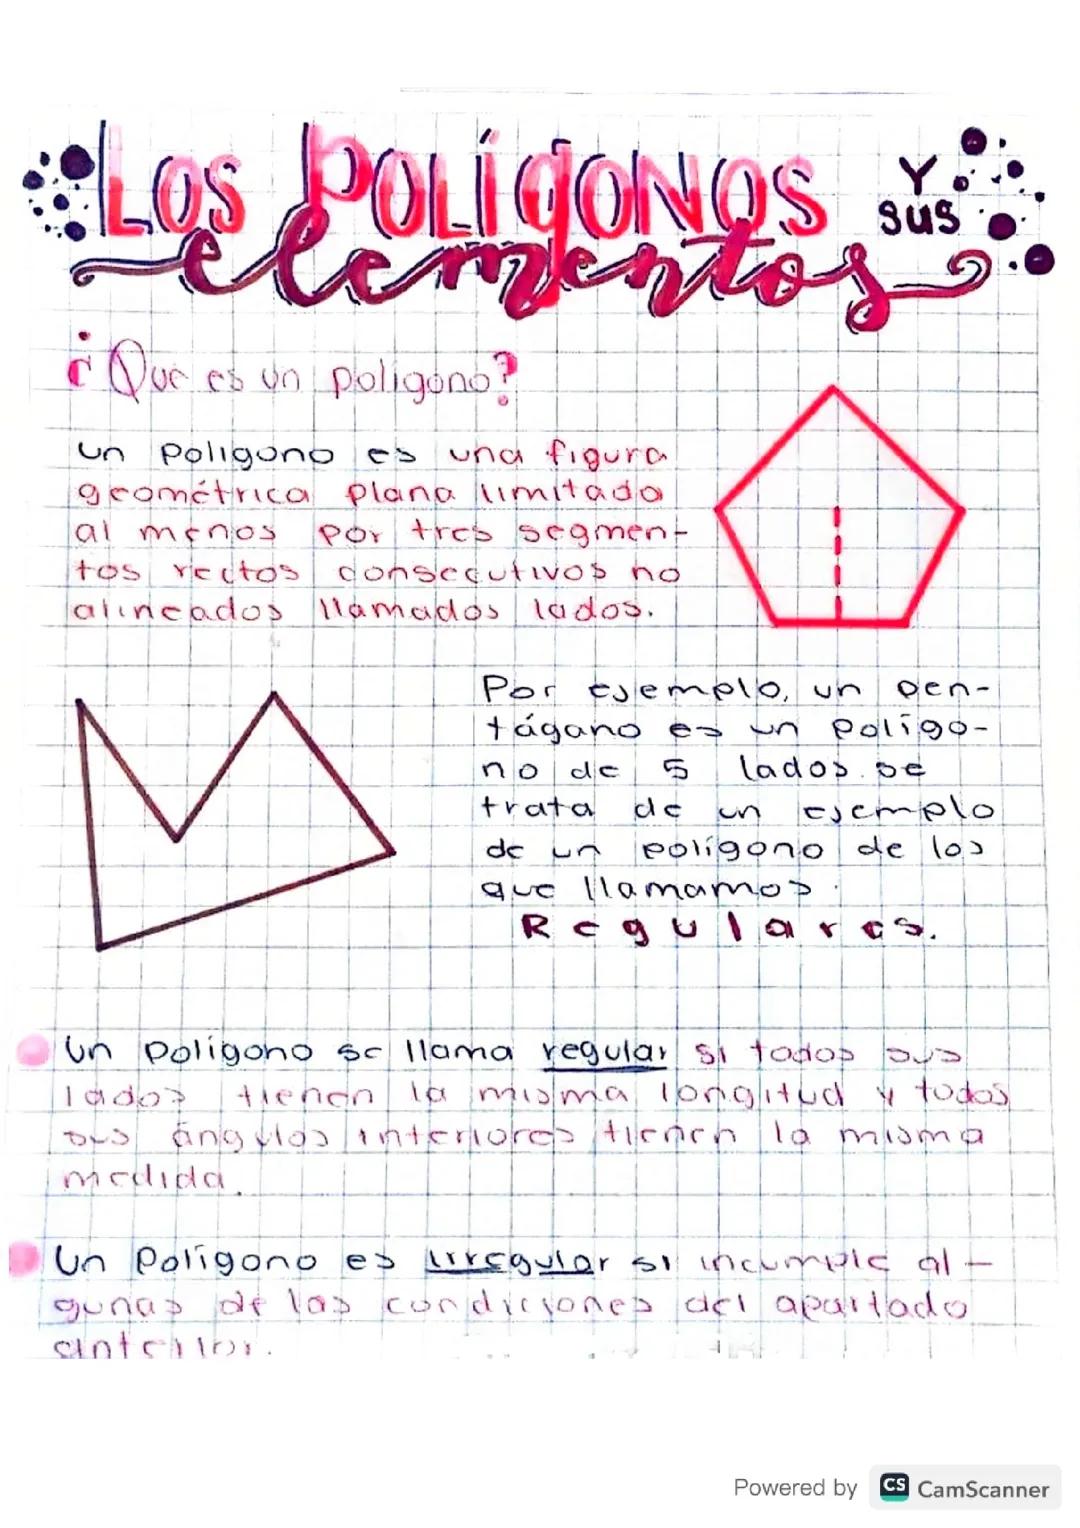 LOS POLÍGONOS Y SUS
elementos
¿Que es un poligono?
un poligono es una figura
geométrica plana limitado
al menos por tres segmen-
tos rectos consecutivos no
alineados llamados lados.
Por ejemplo, un pen-
tágano es un polígo-
no de 5 lados. se
trata de un ejemplo
de un polígono de los
que llamamos.
Regulares.
Un polígono se llama regular si todos sus
lados tienen la misma longitud y todos
sus ángulos interiores tienen la misma
medida.
Un Polígono es irregular si incumple al-
gunas de las condiciones del apartado
anterior.
Powered by CS CamScanner